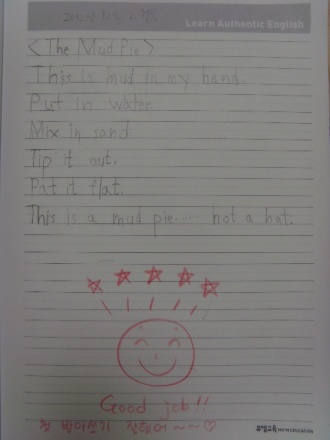 Learn Authentic English
<The Mud Pie>
This is mud in my hand.
Put in water
Mix in sand
Tip it out.
Pat it flat.
This is a mud pie..... not a hat.
Good job!!
첫 받아쓰기 잘했어~~♡